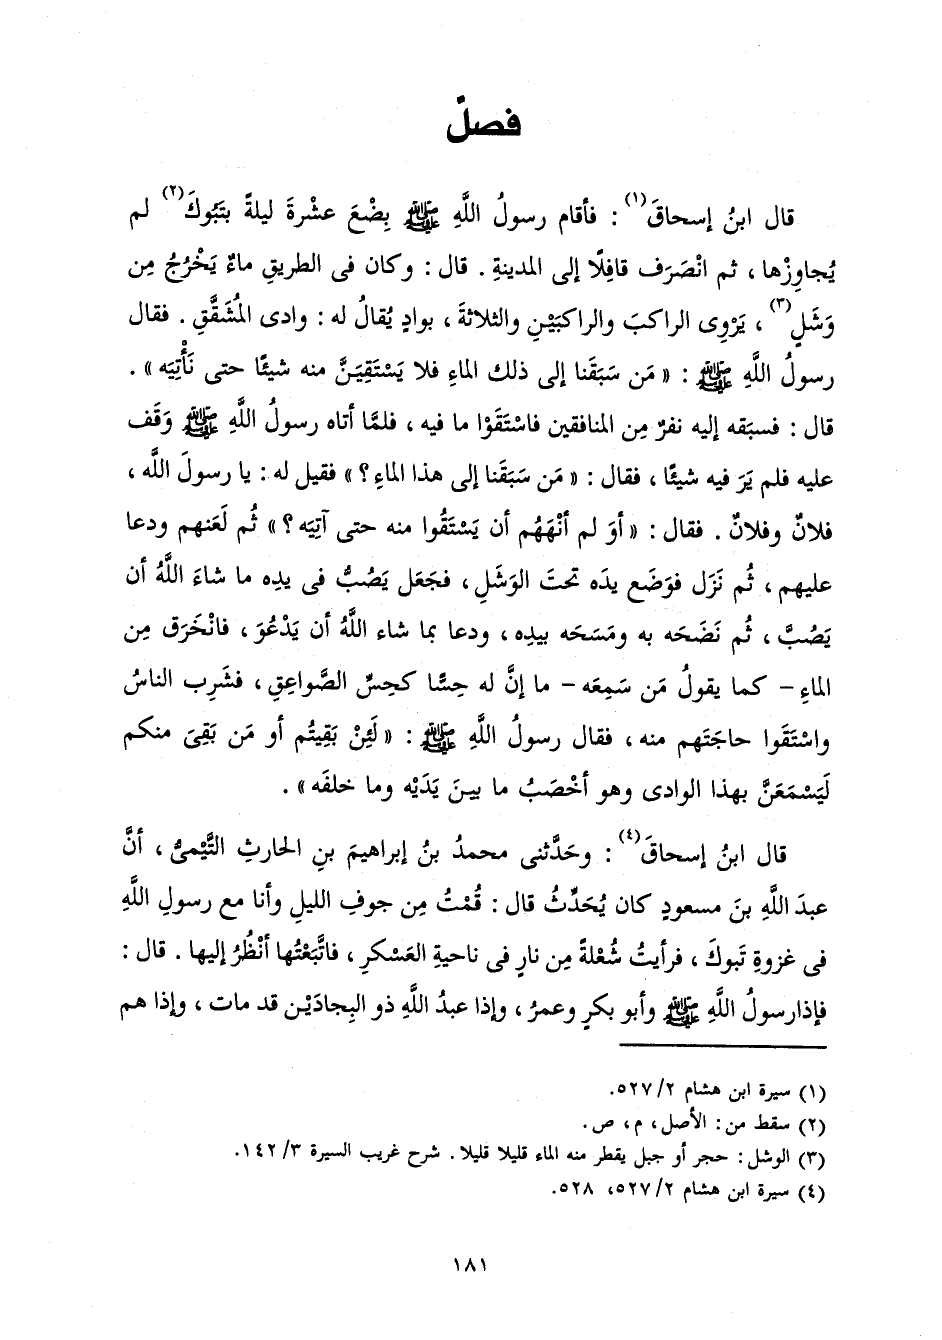 فصلٌ
قال ابنُ إسحاقَ(١) : فأقام رسولُ اللَّهِ ﷺ بِضْعَ عشْرةَ ليلةً بتَبُوكَ(٢) لم
يُجاوِزْها ، ثم انْصَرَف قافِلًا إلى المدينةِ . قال : وكان فى الطريقِ ماءٌ يَخْرُجُ مِن
وَشَلٍ(٣) ، يَرْوِى الراكبَ والراكبَيْنِ والثلاثةَ ، بوادٍ يُقالُ له : وادى المُشَقَّقِ . فقال
رسولُ اللَّهِ ﷺ : « مَن سَبَقَنا إلى ذلك الماءِ فلا يَسْتَقِيَنَّ منه شيئًا حتى نَأْتِيَه » .
قال : فسبَقه إليه نفرٌ مِن المنافقين فاسْتَقَوْا ما فيه ، فلمَّا أتاه رسولُ اللَّهِ ﷺ وَقَف
عليه فلم يَرَ فيه شيئًا ، فقال : « مَن سَبَقَنا إلى هذا الماءِ ؟ » فقيل له : يا رسولَ اللَّه ،
فلانٌ وفلانٌ . فقال : « أوَ لم أَنْهَهُم أن يَسْتَقُوا منه حتى آتِيَه ؟ » ثُم لَعَنهم ودعا
عليهم ، ثُم نَزَل فوَضَع يدَه تحتَ الوَشَلِ ، فجَعَل يَصُبُّ فى يدِه ما شاءَ اللَّهُ أن
يَصُبَّ ، ثُم نَضَحَه به ومَسَحَه بيدِه ، ودعا بما شاء اللَّهُ أن يَدْعُوَ ، فانْخَرَق مِن
الماءِ - كما يقولُ مَن سَمِعَه - ما إنَّ له حِسًّا كحِسِّ الصَّواعِقِ ، فشَرِب الناسُ
واسْتَقَوا حاجَتَهم منه ، فقال رسولُ اللَّهِ ﷺ : « لَئِنْ بَقِيتُم أو مَن بَقِىَ منكم
لَيَسْمَعَنَّ بهذا الوادى وهو أخْصَبُ ما بينَ يَدَيْه وما خلفَه » .
قال ابنُ إسحاقَ(٤) : وحَدَّثنى محمدُ بنُ إبراهيمَ بنِ الحارثِ التَّيْمىُّ ، أنَّ
عبدَ اللَّهِ بنَ مسعودٍ كان يُحَدِّثُ قال : قُمْتُ مِن جوفِ الليلِ وأنا مع رسولِ اللَّهِ
فى غزوةِ تَبوكَ ، فرأيتُ شُعْلةً مِن نارٍ فى ناحيةِ العَسْكرِ ، فاتَّبَعْتُها أنْظُرُ إليها . قال :
فإذا رسولُ اللَّهِ ﷺ وأبو بكرٍ وعمرُ ، وإذا عبدُ اللَّهِ ذو البِجادَيْنِ قد مات ، وإذا هم
(١) سيرة ابن هشام ٢/ ٥٢٧.
(٢) سقط من : الأصل ، م ، ص .
(٣) الوشل : حجر أو جبل يقطر منه الماء قليلا قليلا . شرح غريب السيرة ٣/ ١٤٢.
(٤) سيرة ابن هشام ٢/ ٥٢٧، ٥٢٨.
١٨١